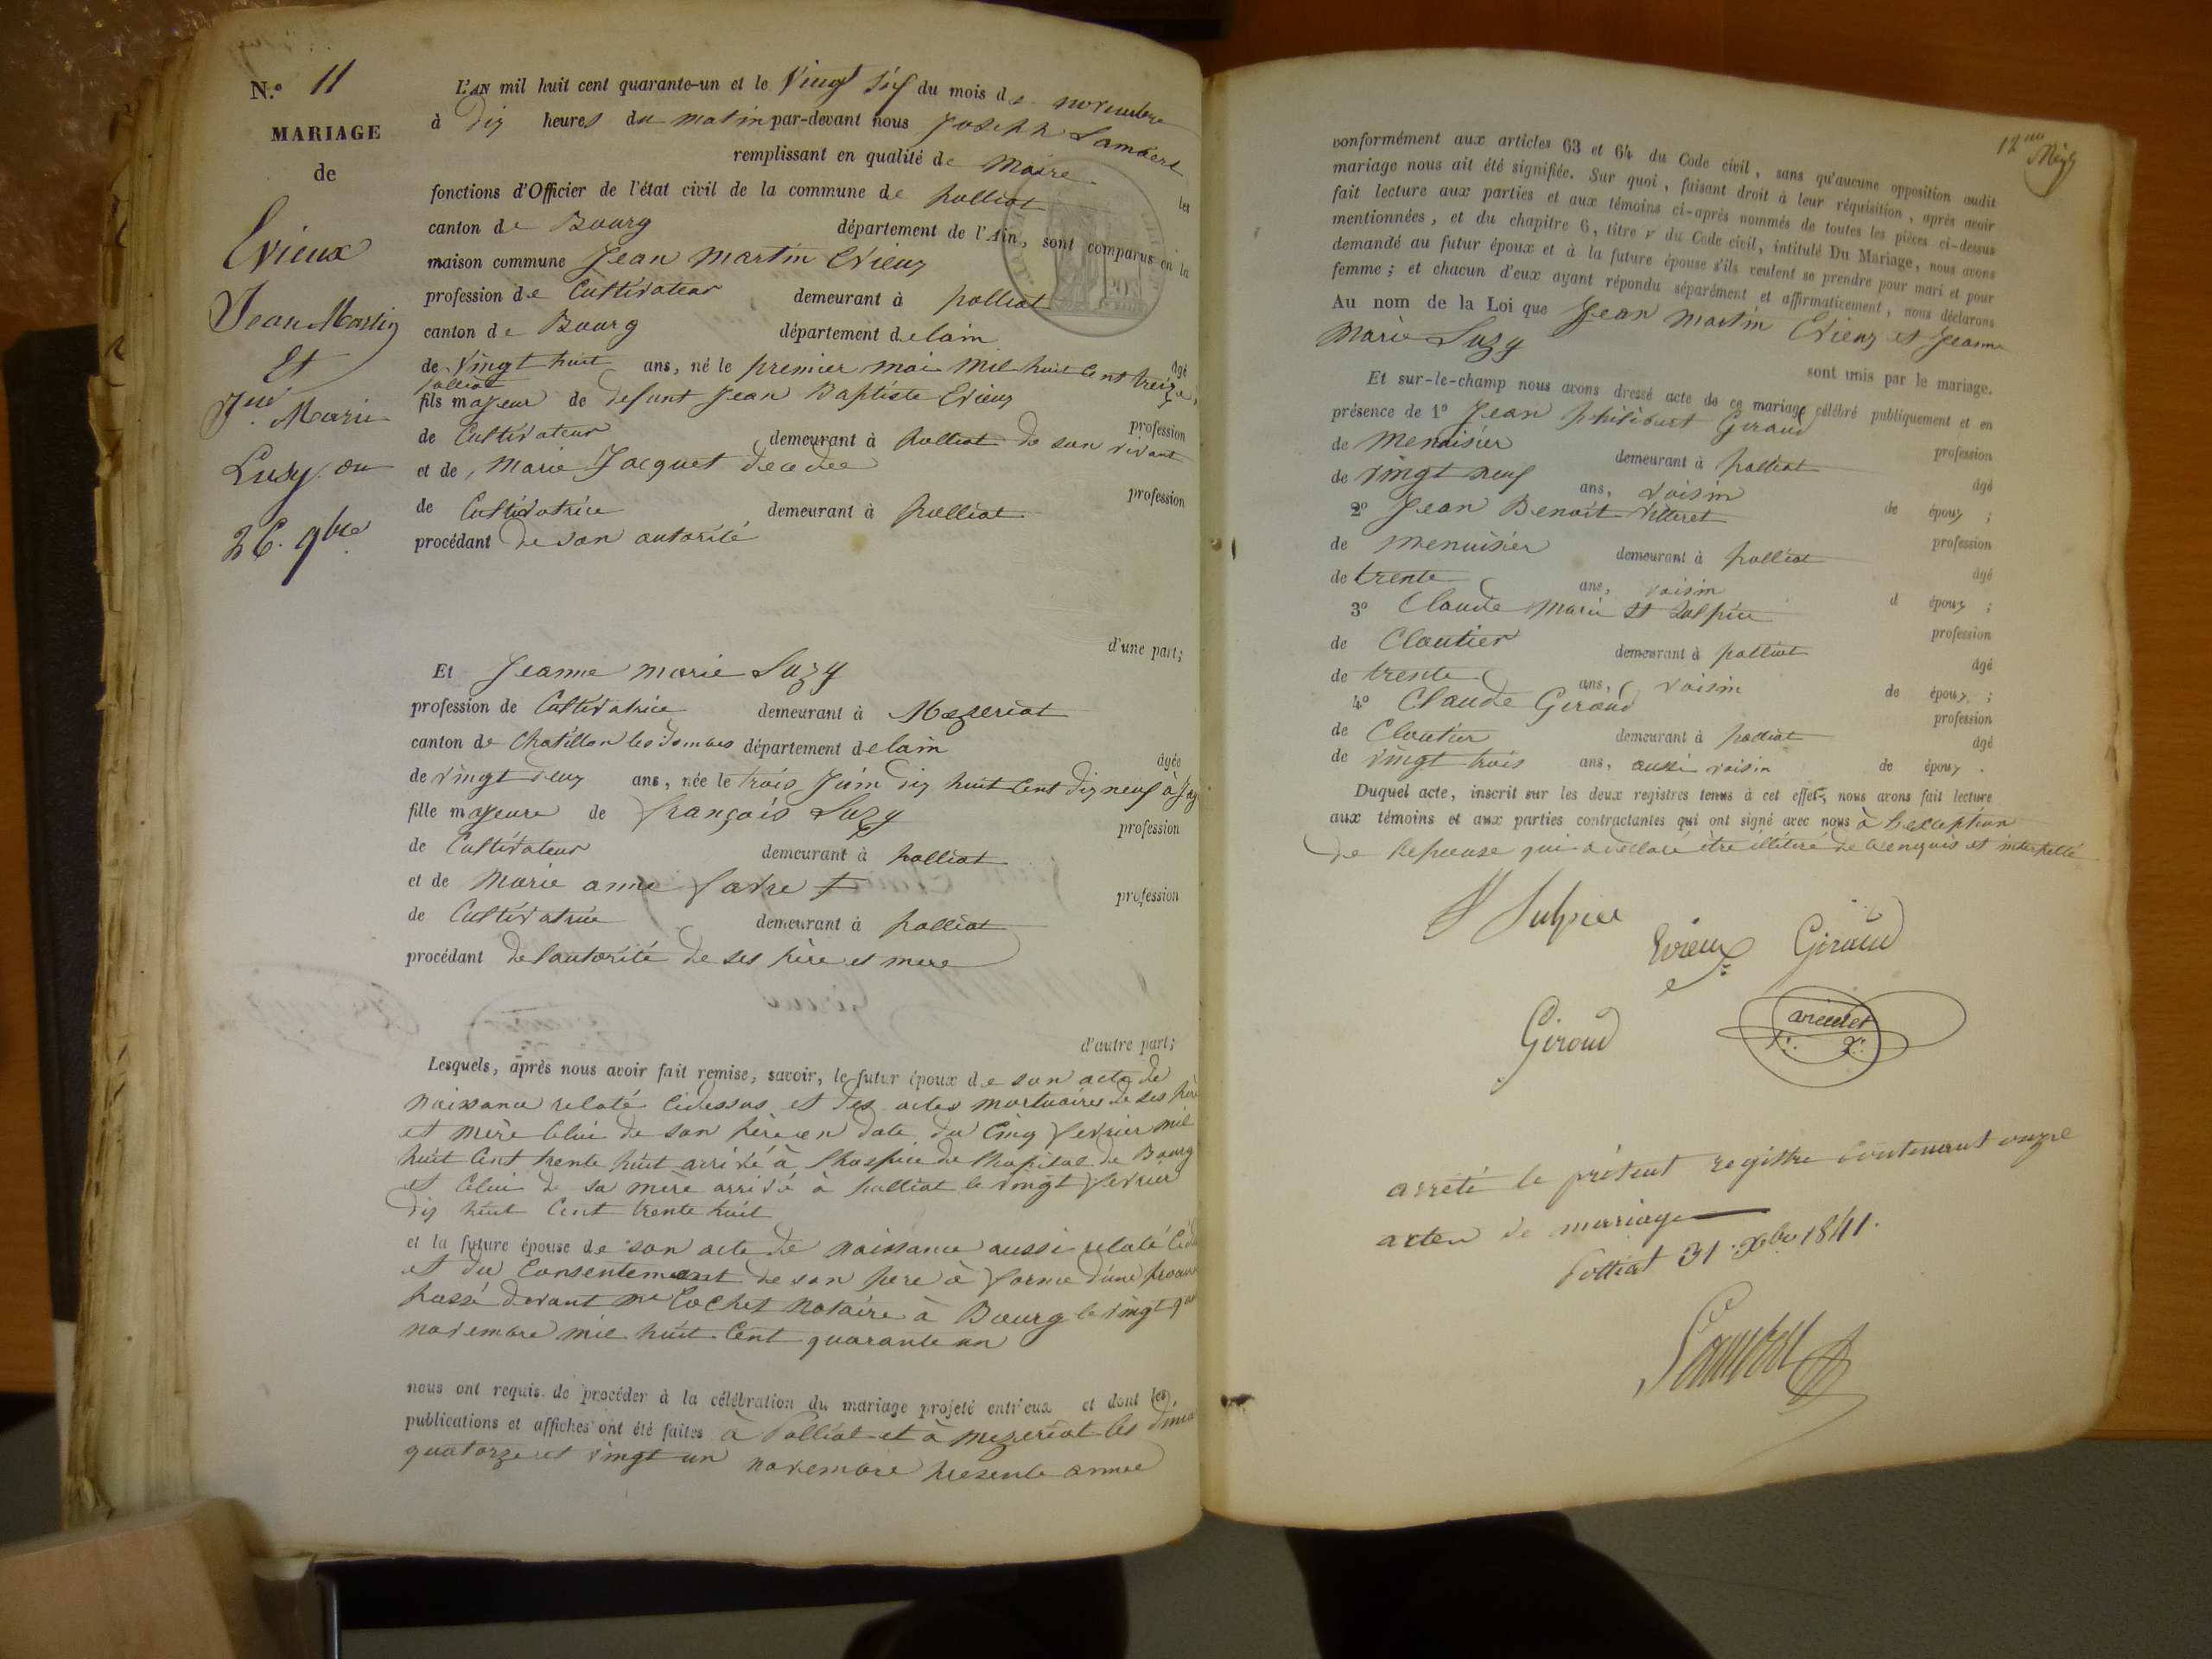 N.° 11
MARIAGE
de
Evieux
Jean Martin
Et
Jne Marie
Luzy. du
26. 9bre
L'AN mil huit cent quarante-un et le Vingt six du mois de novembre
à dix heures du matin par-devant nous Joseph Lambert
remplissant en qualité de Maire les
fonctions d'Officier de l'état civil de la commune de polliat
canton de Bourg département de l'Ain, sont comparus en la
maison commune Jean Martin Evieux
profession de Cultivateur demeurant à polliat
canton de Bourg département delain
âgé
de Vingt huit ans, né le premier mai mil huit cent treize à
polliat
fils majeur de defunt Jean Baptiste Evieux
profession
de Cultivateur demeurant à polliat de son vivant
et de Marie Jacquet decedee
profession
de Cultivatrice demeurant à polliat
procédant de son autorité
d'une part;
Et Jeanne marie Luzy
profession de Cultivatrice demeurant à Mezeriat
canton de Chatillon les dombes département delain
âgée
de vingt deux ans, née le trois Juin dix huit cent dix neuf à
fille majeure de françois Luzy
profession
de Cultivateur demeurant à polliat
et de Marie anne favre
profession
de Cultivatrice demeurant à polliat
procédant de lautorité de ses père et mere
d'autre part;
Lesquels, après nous avoir fait remise, savoir, le futur époux de son acte de
naissance relaté cidessus et des actes mortuaires de ses père
et mère Celui de son père en date du Cinq fevrier mil
huit Cent trente huit arrivé à lhospice de lhopital de Bourg
et Celui de sa mère arrivé à polliat le vingt fevrier
dix huit Cent trente huit
et la future épouse de son acte de naissance aussi relaté
et du Consentement de son pere à forme d'une
passé devant me Cochet notaire à Bourg le vingt
novembre mil huit Cent quarante un
nous ont requis de procéder à la célébration du mariage projeté entr'eux et dont les
publications et affiches ont été faites à Polliat et à mezeriat les
quatorze et vingt un novembre presente année
12me
conformément aux articles 63 et 64 du Code civil, sans qu'aucune opposition audit
mariage nous ait été signifiée. Sur quoi, faisant droit à leur réquisition, après avoir
fait lecture aux parties et aux témoins ci-après nommés de toutes les pièces ci-dessus
mentionnées, et du chapitre 6, titre v du Code civil, intitulé Du Mariage, nous avons
demandé au futur époux et à la future épouse s'ils veulent se prendre pour mari et pour
femme; et chacun d'eux ayant répondu séparément et affirmativement, nous déclarons
Au nom de la Loi que Jean Martin Evieux et Jeanne
Marie Luzy
sont unis par le mariage.
Et sur-le-champ nous avons dressé acte de ce mariage célébré publiquement et en
présence de 1° Jean philibert Giraud
profession
de Menuisier demeurant à polliat
âgé
de vingt neuf ans, voisin de époux ;
2° Jean Benoit Vitteret
profession
de menuisier demeurant à polliat
âgé
de trente ans, voisin d époux ;
3° Claude Marie St Sulpice
profession
de Cloutier demeurant à polliat
âgé
de trente ans, voisin de époux ;
4° Claude Giroud
profession
de Cloutier demeurant à polliat
âgé
de vingt trois ans, aussi voisin de époux .
Duquel acte, inscrit sur les deux registres tenus à cet effet, nous avons fait lecture
aux témoins et aux parties contractantes qui ont signé avec nous à lexception
de lepouse qui a déclaré être illitéré de ce enquis et interpellé
St Sulpice
Evieux Giraud
Giroud
arrêté le présent registre contenant onze
actes de mariage
Polliat 31 Xbre 1841.
Lambert